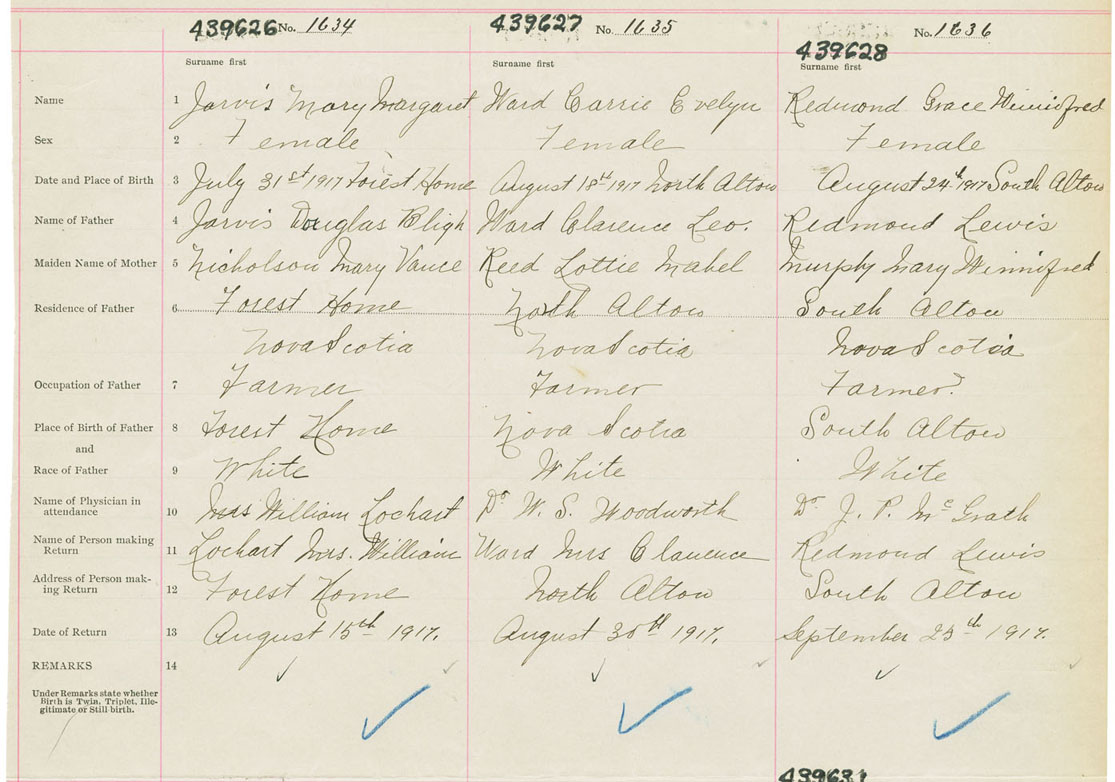 439626 No. 1634 439627 No. 1635 439628 No. 1636
Surname first Surname first Surname first
Name 1 Jarvis Mary Margaret Ward Carrie Evelyn Redmond Grace Winnifred
Sex 2 Female Female Female
Date and Place of Birth 3 July 31st 1917 Forest Home August 18th 1917 North Alton August 24th 1917 South Alton
Name of Father 4 Jarvis Douglas Bligh Ward Clarence Leo. Redmond Lewis
Maiden Name of Mother 5 Nicholson Mary Vance Reed Lottie Mabel Murphy Mary Winnifred
Residence of Father 6 Forest Home North Alton South Alton
Nova Scotia Nova Scotia Nova Scotia
Occupation of Father 7 Farmer Farmer Farmer
Place of Birth of Father 8 Forest Home Nova Scotia South Alton
and
Race of Father 9 White White White
Name of Physician in
attendance 10 Mrs William Lochart Dr W. S. Woodworth Dr. J. P. McGrath
Name of Person making
Return 11 Lochart Mrs. William Ward Mrs Clarence Redmond Lewis
Address of Person mak-
ing Return 12 Forest Home North Alton South Alton
Date of Return 13 August 15th 1917. August 30th 1917. September 25th 1917.
REMARKS 14
Under Remarks state whether
Birth is Twin, Triplet, Ille-
gitimate or Still-birth.